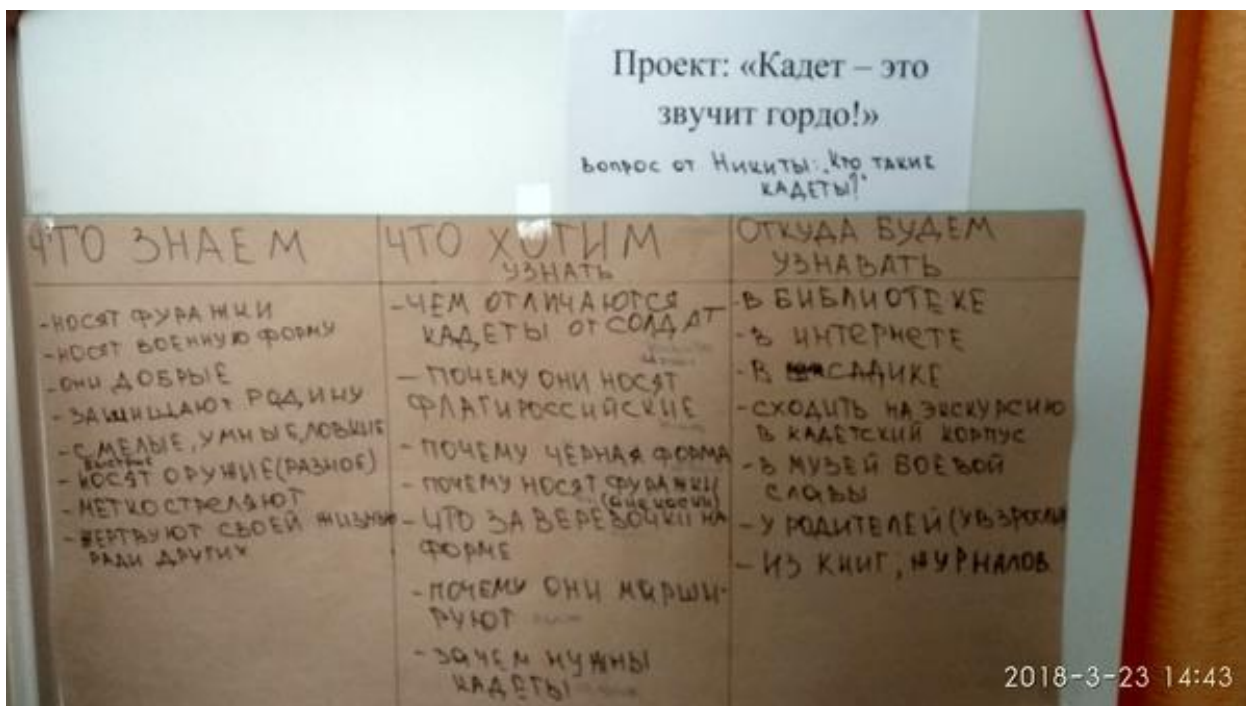 Проект: «Кадет – это
звучит гордо!»
Вопрос от Никиты: „Кто такие
кадеты?"
ЧТО ЗНАЕМ
- НОСЯТ ФУРАЖКИ
- НОСЯТ ВОЕННУЮ ФОРМУ
- ОНИ ДОБРЫЕ
- ЗАЩИЩАЮТ РОДИНУ
- СМЕЛЫЕ, УМНЫЕ, ЛОВКИЕ
быстрые
- НОСЯТ ОРУЖИЕ (РАЗНОЕ)
- МЕТКО СТРЕЛЯЮТ
- ЖЕРТВУЮТ СВОЕЙ ЖИЗНЬЮ
РАДИ ДРУГИХ
ЧТО ХОТИМ
УЗНАТЬ
- ЧЕМ ОТЛИЧАЮТСЯ
КАДЕТЫ ОТ СОЛДАТ
- ПОЧЕМУ ОНИ НОСЯТ
ФЛАГИ РОССИЙСКИЕ
- ПОЧЕМУ ЧЕРНАЯ ФОРМА
- ПОЧЕМУ НОСЯТ ФУРАЖКИ
- ЧТО ЗА ВЕРЕВОЧКИ НА
ФОРМЕ
- ПОЧЕМУ ОНИ МАРШИ-
РУЮТ
- ЗАЧЕМ НУЖНЫ
КАДЕТЫ
ОТКУДА БУДЕМ
УЗНАВАТЬ
- В БИБЛИОТЕКЕ
- В ИНТЕРНЕТЕ
- В САДИКЕ
- СХОДИТЬ НА ЭКСКУРСИЮ
В КАДЕТСКИЙ КОРПУС
- В МУЗЕЙ БОЕВОЙ
СЛАВЫ
- У РОДИТЕЛЕЙ (У ВЗРОСЛЫ
- ИЗ КНИГ, ЖУРНАЛОВ
2018-3-23 14:43